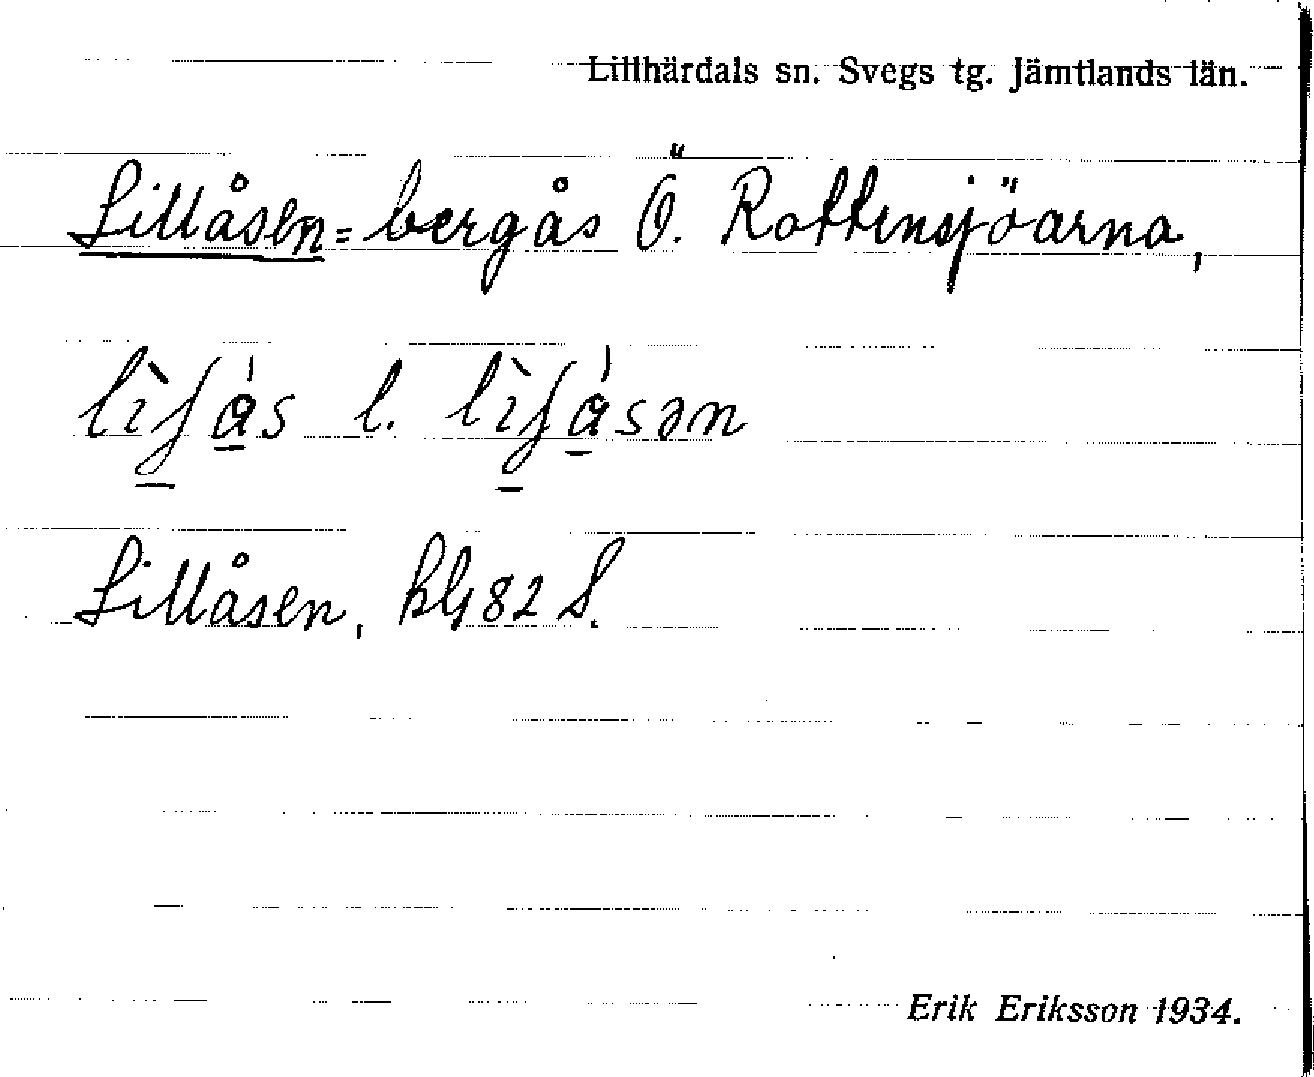 Lillhärdals sn. Svegs tg. Jämtlands län.
Lillåsen = bergås Ö. Rottensjöarna,
l. 
Lillåsen, kbl 82 S.
Erik Eriksson 1934.